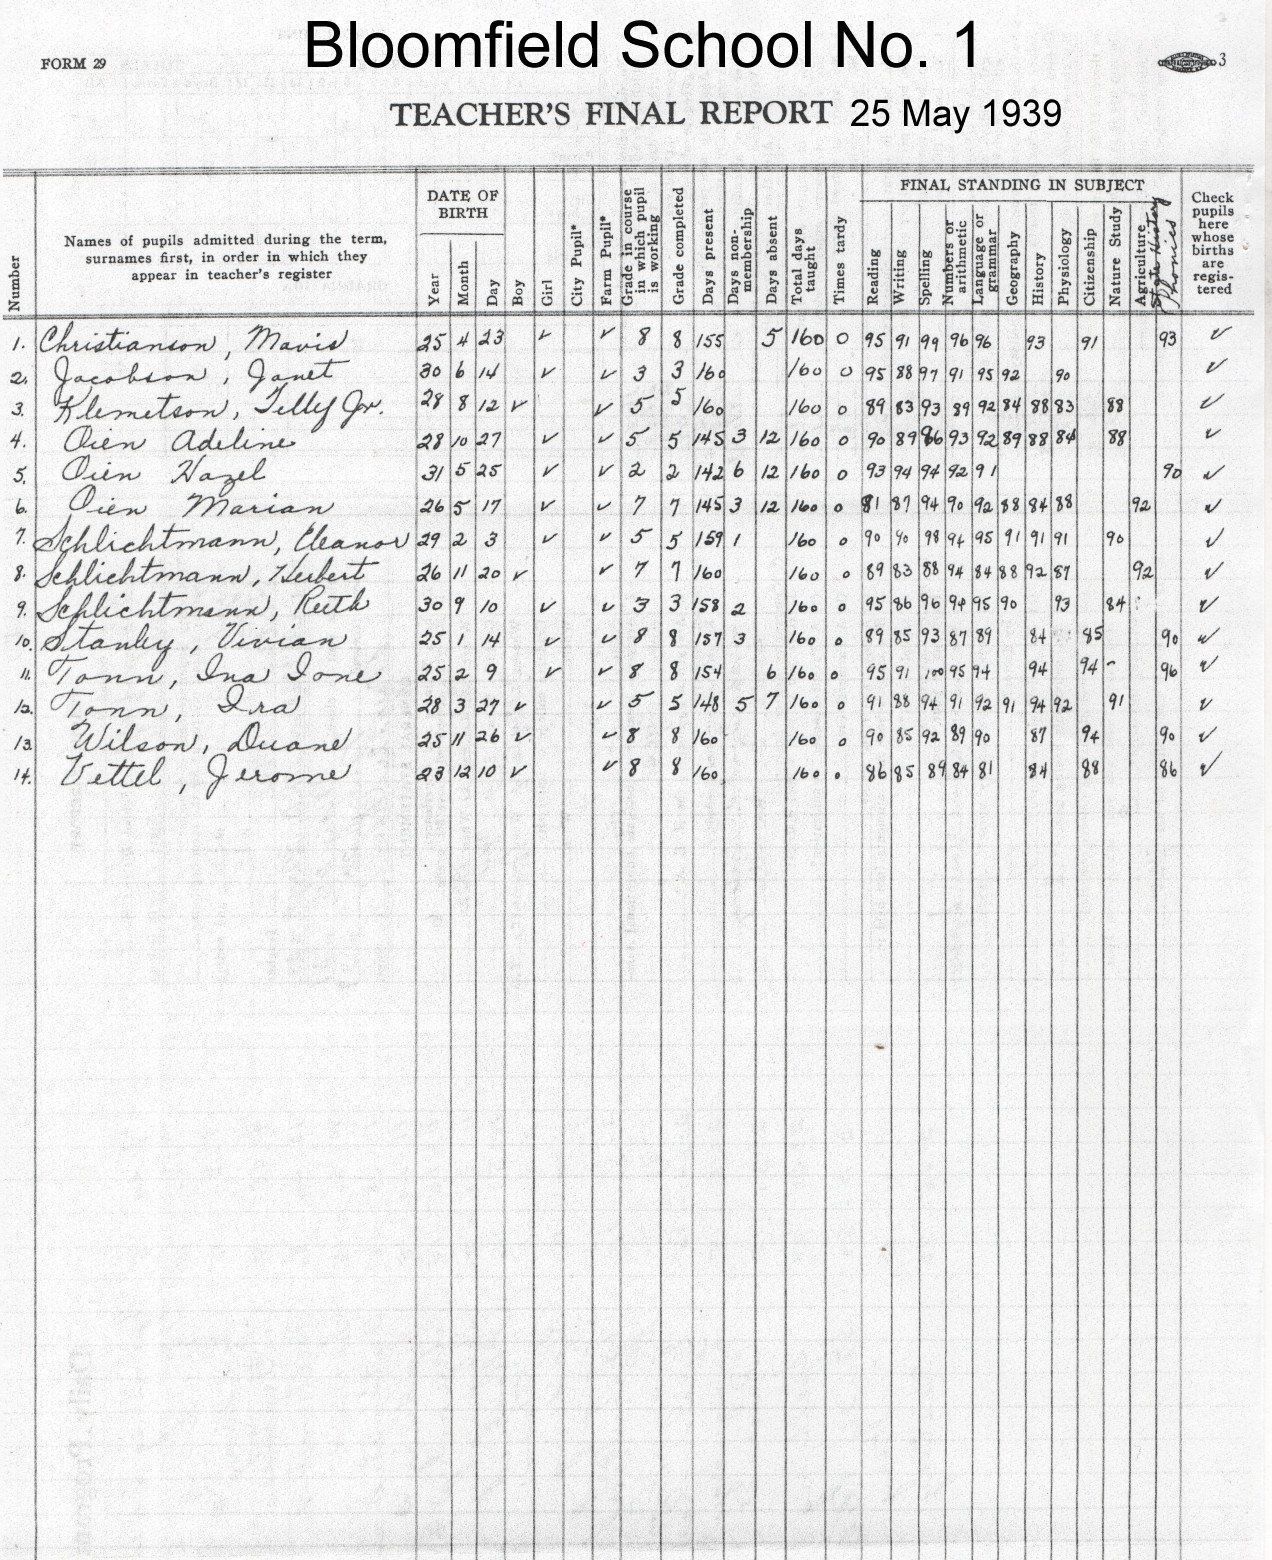 Bloomfield School No. 1
FORM 29
3
TEACHER'S FINAL REPORT 25 May 1939
Number
Names of pupils admitted during the term, surnames first, in order in which they appear in teacher's register
DATE OF BIRTH
Year
Month
Day
Boy
Girl
City Pupil*
Farm Pupil*
Grade in course in which pupil is working
Grade completed
Days present
Days non-membership
Days absent
Total days taught
Times tardy
FINAL STANDING IN SUBJECT
Reading
Writing
Spelling
Numbers or arithmetic
Language or grammar
Geography
History
Physiology
Citizenship
Nature Study
Agriculture
State History
Phonics
Check pupils here whose births are registered
1. Christianson, Mavis 25 4 23 ✓ ✓ 8 8 155 5 160 0 95 91 99 96 96 93 91 93 ✓
2. Jacobson, Janet 30 6 14 ✓ ✓ 3 3 160 160 0 95 88 97 91 95 92 90 ✓
3. Klemetson, Telly Jr. 28 8 12 ✓ ✓ 5 5 160 160 0 89 83 93 89 92 84 88 83 88 ✓
4. Oien Adeline 28 10 27 ✓ ✓ 5 5 145 3 12 160 0 90 89 86 93 92 89 88 84 88 ✓
5. Oien Hazel 31 5 25 ✓ ✓ 2 2 142 6 12 160 0 93 94 94 92 91 90 ✓
6. Oien Marian 26 5 17 ✓ ✓ 7 7 145 3 12 160 0 81 87 94 90 92 88 84 88 92 ✓
7. Schlichtmann, Eleanor 29 2 3 ✓ ✓ 5 5 159 1 160 0 90 90 98 94 95 91 91 91 90 ✓
8. Schlichtmann, Herbert 26 11 20 ✓ ✓ 7 7 160 160 0 89 83 88 94 84 88 92 87 92 ✓
9. Schlichtmann, Ruth 30 9 10 ✓ ✓ 3 3 158 2 160 0 95 86 96 94 95 90 93 84 ✓
10. Stanley, Vivian 25 1 14 ✓ ✓ 8 8 157 3 160 0 89 85 93 87 89 84 85 90 ✓
11. Tonn, Ina Ione 25 2 9 ✓ ✓ 8 8 154 6 160 0 95 91 100 95 94 94 94 96 ✓
12. Tonn, Ira 28 3 27 ✓ ✓ 5 5 148 5 7 160 0 91 88 94 91 92 91 94 92 91 ✓
13. Wilson, Duane 25 11 26 ✓ ✓ 8 8 160 160 0 90 85 92 89 90 87 94 90 ✓
14. Vettel, Jerome 23 12 10 ✓ ✓ 8 8 160 160 0 86 85 89 84 81 84 88 86 ✓